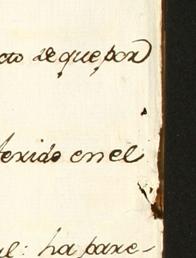 cto de que por
terido en el
el: ha pare-